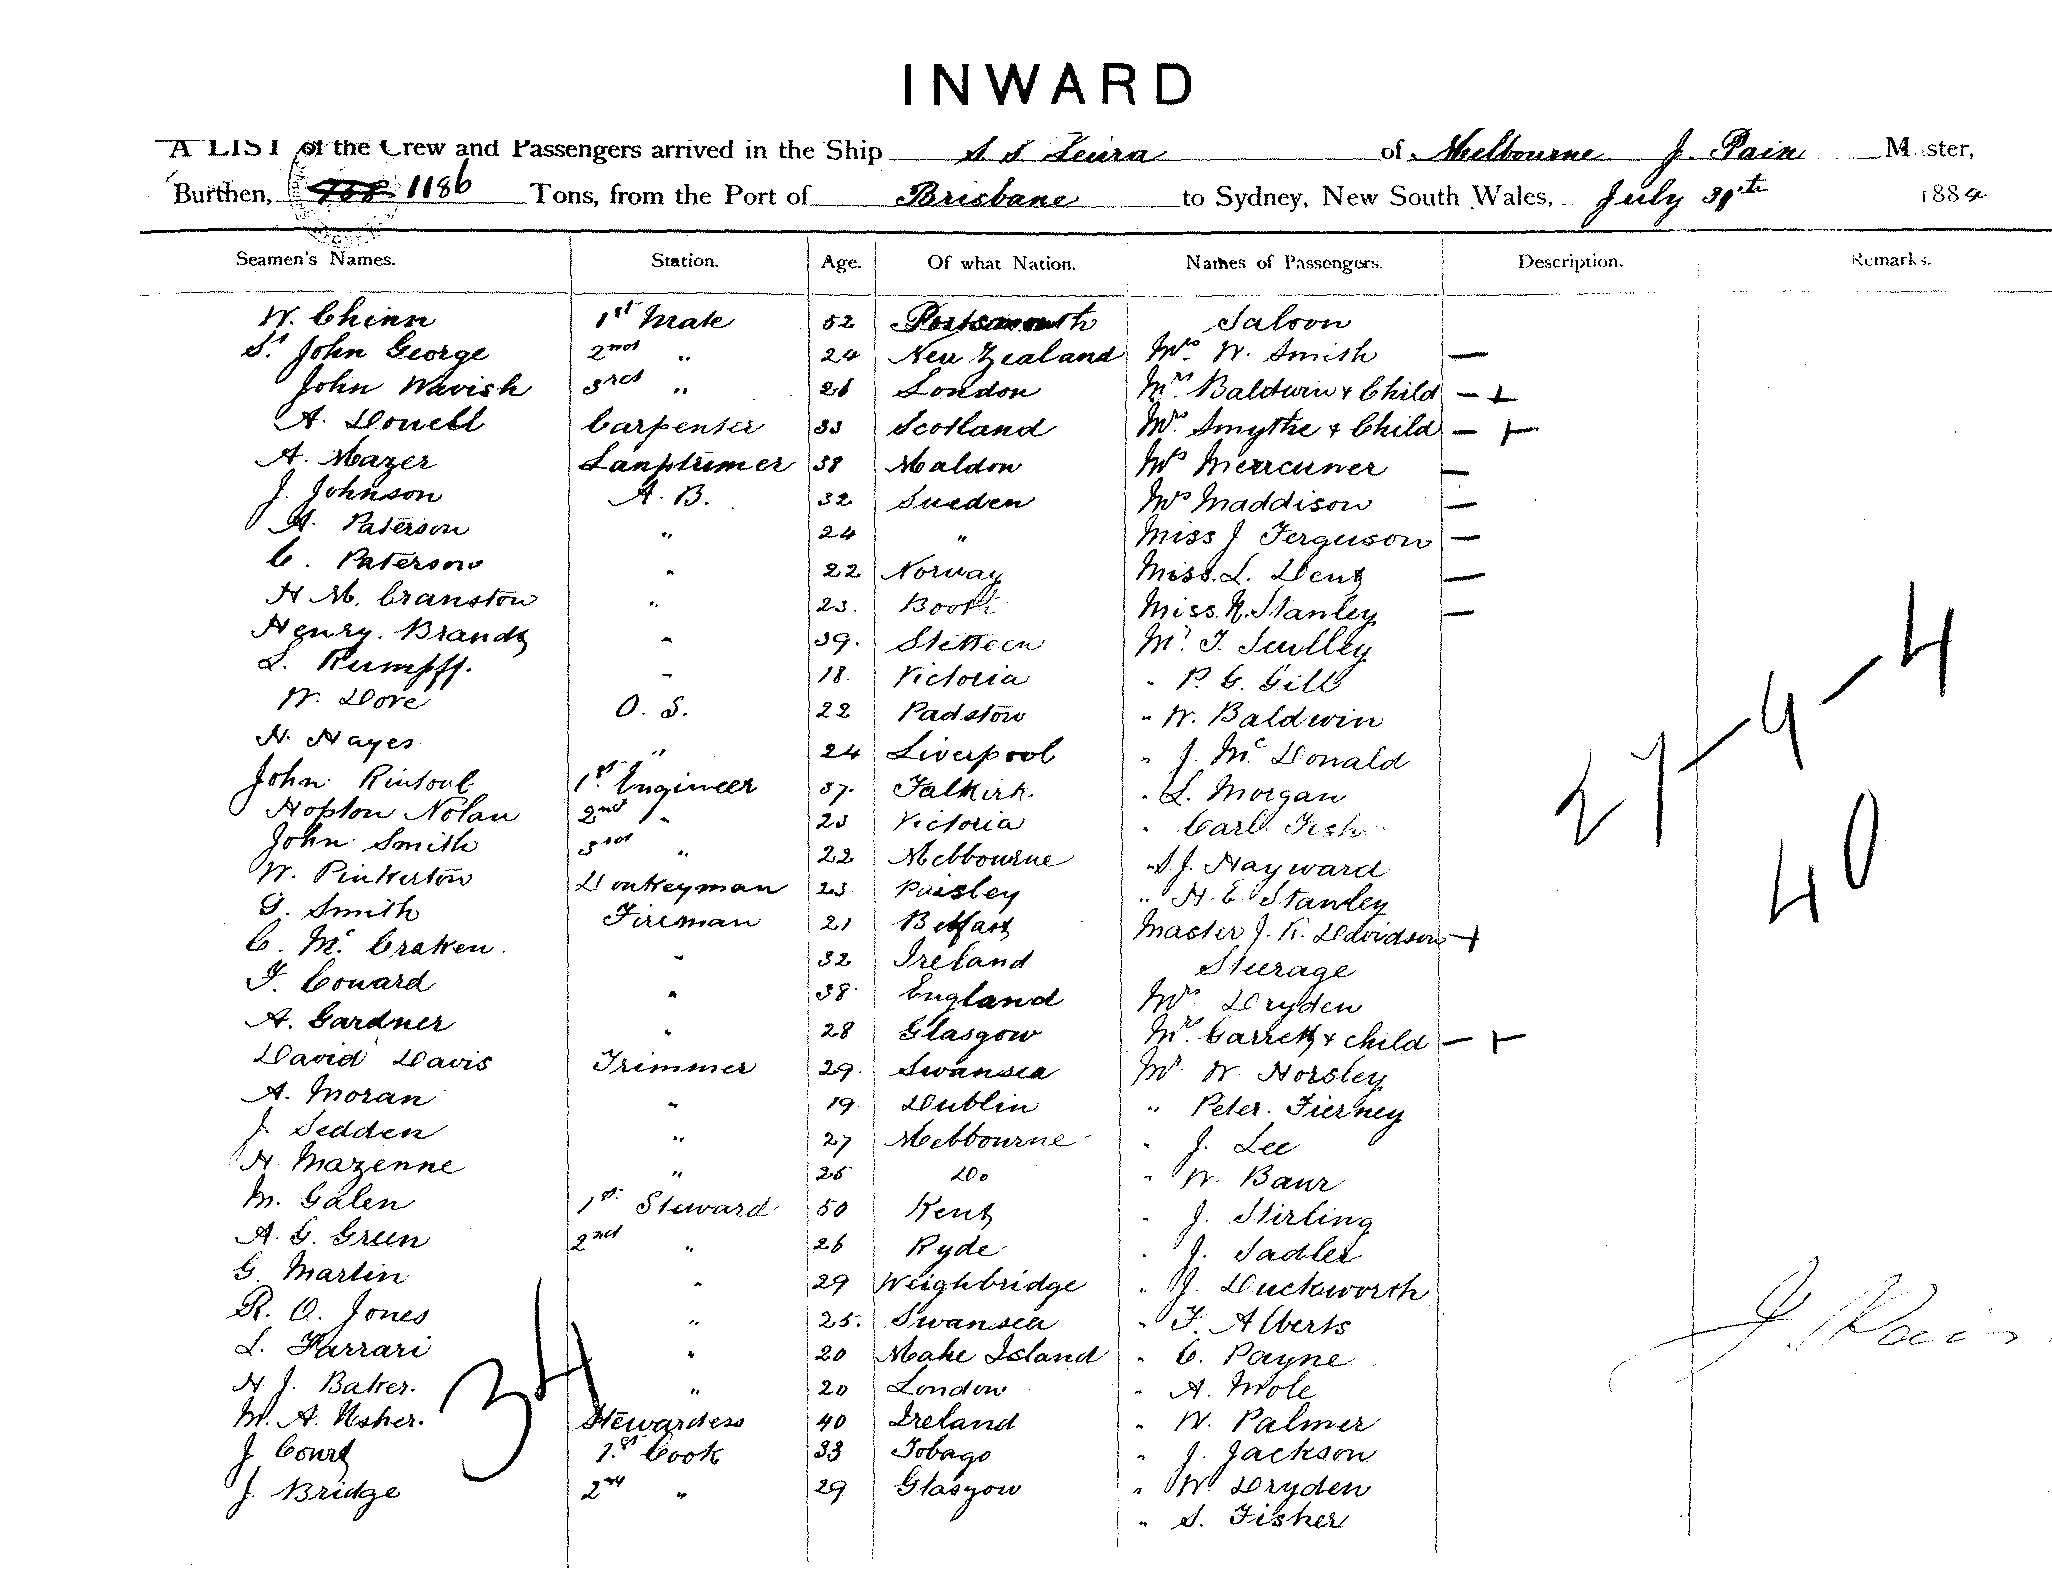 INWARD
A LIST of the Crew and Passengers arrived in the Ship S S Leura of Melbourne J. Pain Master,
Burthen, 1186 Tons, from the Port of Brisbane to Sydney, New South Wales, July 31th 1884
Seamen's Names. Station. Age. Of what Nation. Names of Passengers. Description. Remarks.
W. Chinn 1st Mate 52 Portsmouth Saloon
St John George 2nd " 24 New Zealand Mrs W. Smith —
John Wavish 3rd " 26 London Mrs Baldwin & Child — +
A. Dowell Carpenter 33 Scotland Mrs Smythe & Child — +
A. Mazer Lamptrimer 38 Maldon Mrs —
J. Johnson A. B. 32 Sueden Mrs Maddison —
A. Paterson " 24 " Miss J Ferguson —
C. Paterson " 22 Norway Miss. L. Dent —
H M. Cranston " 23. Miss. N. Stanley —
Henry. Brandt " 39. Stetteen Mr T. Sculley
L. Rumpff. " 18. Victoria " P. G. Gill
W. Dove O. S. 22 Padstow " W. Baldwin
H. Hayes " 24 Liverpool " J. Mc Donald
John Rintoul 1st Engineer 37. Falkirk. " L. Morgan
Hopton Nolan 2nd " 23 Victoria " Carl Fesh
John Smith 3rd " 22 Melbourne " S J. Hayward
W. Pinkerton Donkeyman 23 Paisley " H. E. Stanley
G. Smith Fireman 21 Belfast Master J. R. Davidson +
C. Mc Craken. " 32 Ireland Sturage
F. Couard " 38 England Mrs Dryden
A. Gardner " 28 Glasgow Mrs Garrett & child — +
David Davis Trimmer 29. Swansea Mr W. Horsley
A. Moran " 19 Dublin " Peter. Tierney
J. Sedden " 27 Melbourne " J. Lee
H. Mazenne " 25 Do " W. Baur
M. Galen 1st Steward 50 Kent " J. Stirling
A. G. Green 2nd " 26 Ryde " J. Sadler
G. Martin " 29 Weighbridge " J. Duckworth
R. O. Jones " 25. Swansea " F. Alberts
L. Farrari " 20 Mahe Island " C. Payne
H J. Baker. " 20 London " A. Mole
M. A. Usher. Stewardess 40 Ireland " W. Palmer
J Court 1st Cook 33 Tobago " J. Jackson
J. Bridge 2nd " 29 Glasgow " W. Dryden
" S. Fisher
27 — 4 — 4
40
34
J. Pain